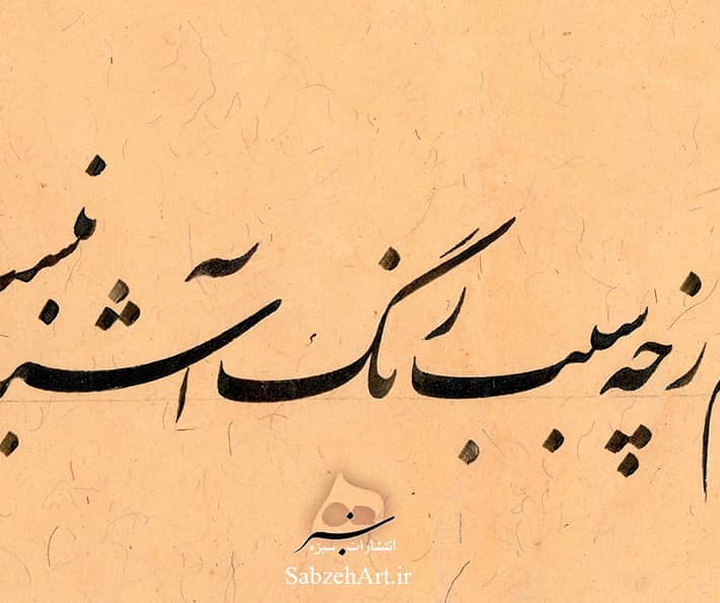 ز چه سبب رنگ آ
سبزه
انتشارات سبزه
SabzehArt.ir